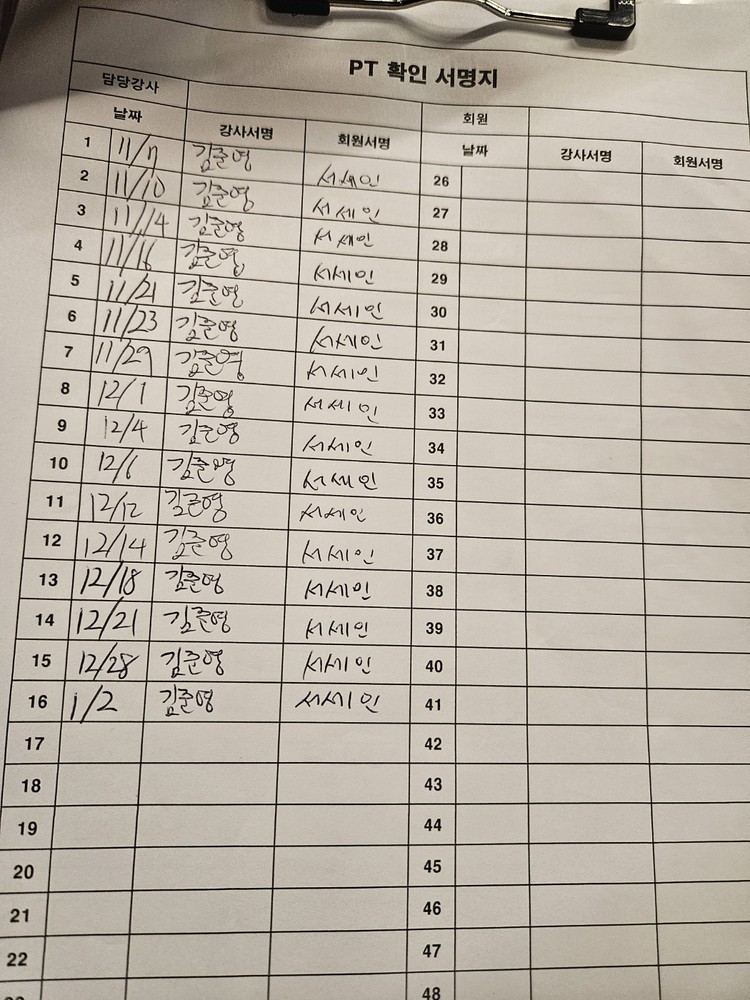 PT 확인 서명지
담당강사 회원
날짜 강사서명 회원서명 날짜 강사서명 회원서명
1 11/7 김준영 서세인 26
2 11/10 김준영 서세인 27
3 11/14 김준영 서세인 28
4 11/16 김준영 서세인 29
5 11/21 김준영 서세인 30
6 11/23 김준영 서세인 31
7 11/29 김준영 서세인 32
8 12/1 김준영 서세인 33
9 12/4 김준영 서세인 34
10 12/6 김준영 서세인 35
11 12/12 김준영 서세인 36
12 12/14 김준영 서세인 37
13 12/18 김준영 서세인 38
14 12/21 김준영 서세인 39
15 12/28 김준영 서세인 40
16 1/2 김준영 서세인 41
17 42
18 43
19 44
20 45
21 46
22 47
48